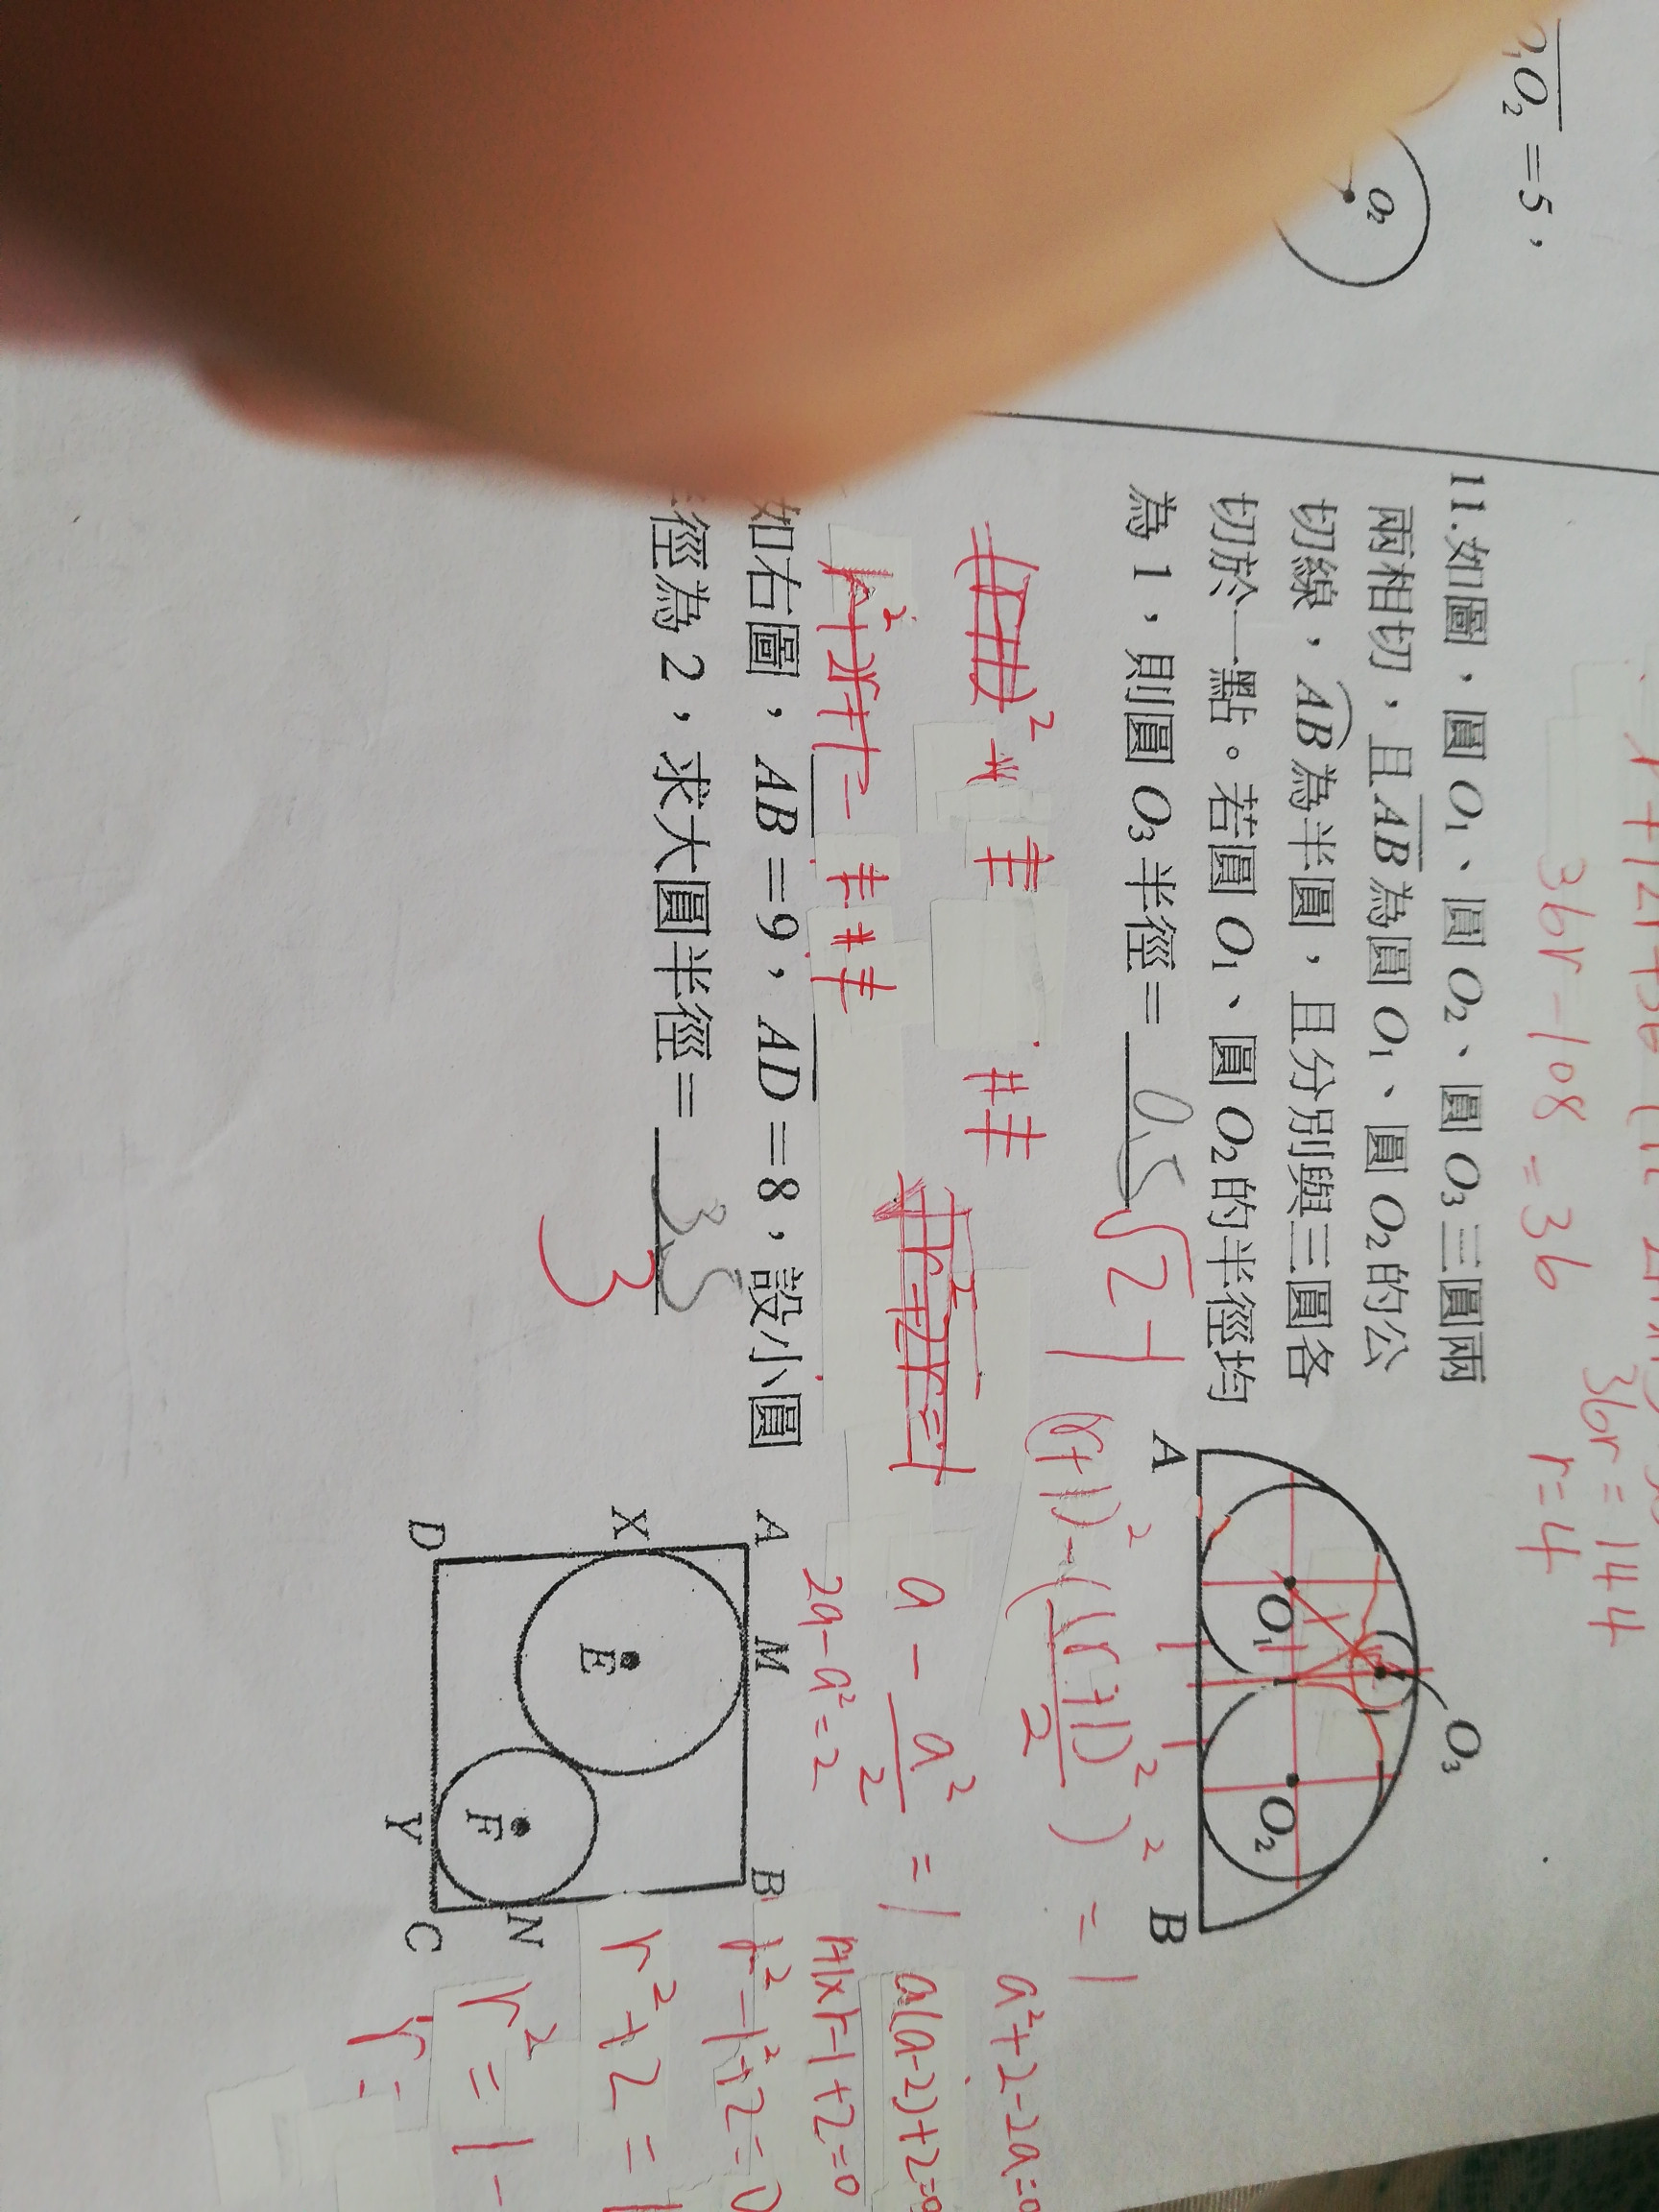 O₂ = 5，
O₂
36r - 108 = 36
36r = 144
r = 4
11.如圖，圓 O₁、圓 O₂、圓 O₃ 三圓兩
兩相切，且 AB 為圓 O₁、圓 O₂ 的公
切線，AB 為半圓，且分別與三圓各
切於一點。若圓 O₁、圓 O₂ 的半徑均
為 1，則圓 O₃ 半徑= 0.5 √2-1
A
B
O₁
O₂
O₃
a - a²/2 = 1
2a - a² = 2
a² + 2 - 2a = 0
a(a-2) + 2 = 0
r² - 1² + 2 = 0
r² + 2 = 1
r² = 1 -
r =
如右圖，AB = 9，AD = 8，設小圓
徑為 2，求大圓半徑= 3.5
3
A
M
B
X
E
F
N
D
Y
C